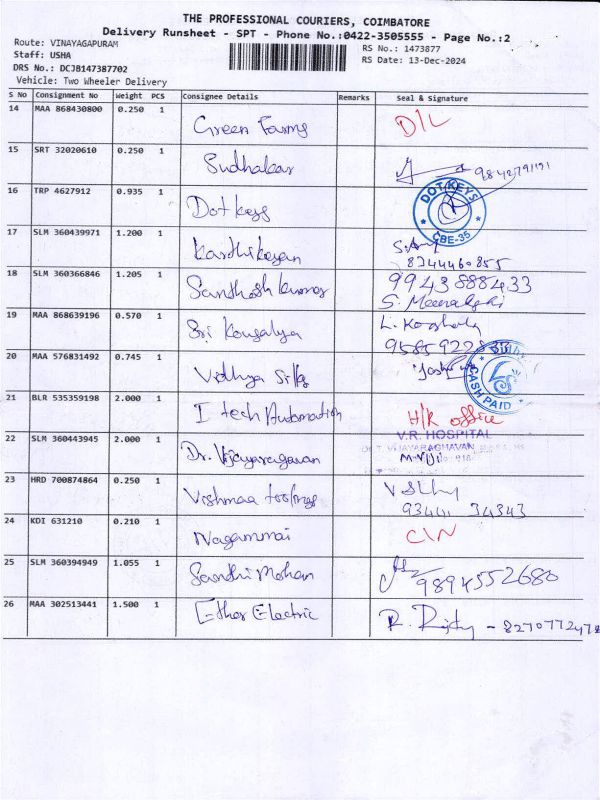 THE PROFESSIONAL COURIERS, COIMBATORE
Delivery Runsheet - SPT - Phone No.:0422-3505555 - Page No.:2
Route: VINAYAGAPURAM
RS No.: 1473877
Staff: USHA
RS Date: 13-Dec-2024
DRS No.: DCJB147387702
Vehicle: Two Wheeler Delivery
S No Consignment No Weight PCS Consignee Details Remarks Seal & Signature
14 MAA 868430800 0.250 1 Green Farms D/L
15 SRT 32020610 0.250 1 Sudhakar
16 TRP 4627912 0.935 1 Dot keys DOT KEYS CBE-35
17 SLM 360439971 1.200 1 Karthikeyan
8344460855
18 SLM 360366846 1.205 1 Santhosh kumar 9943888433
S. Meenakshi
19 MAA 868639196 0.570 1 Sri Kousalya
20 MAA 576831492 0.745 1 Vidhya Silks CASH PAID
21 BLR 535359198 2.000 1 I tech Automation H/R office
22 SLM 360443945 2.000 1 Dr. Vijayaragavan V.R. HOSPITAL
VIJAYARAGHAVAN
23 HRD 700874864 0.250 1 Vishmaa toolings
34343
24 KDI 631210 0.210 1 Nagammai C/N
25 SLM 360394949 1.055 1 Santhi Mohan 9894552680
26 MAA 302513441 1.500 1 Ether Electric